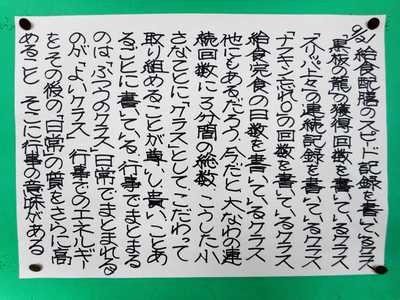 9/21 給食配膳のスピード記録を書いているクラス
「黒板の龍」の獲得回数を書いているクラス
「パ上々」の連続記録を書いているクラス
「フキン忘れ0」の回数を書いているクラス
給食完食の日数を書いているクラス
他にもあるだろう。今だと、大なわの連
続回数に3分間の総数。こうした小
さなことに「クラス」として、こだわって
取り組めることが尊い、貴い。ことあ
るごとに書いている。行事でまとまる
のは「ふつうのクラス」日常でまとまれる
のが「よいクラス」。行事でのエネルギー
をその後の「日常」の質をさらに高
めること。そこに行事の意味がある